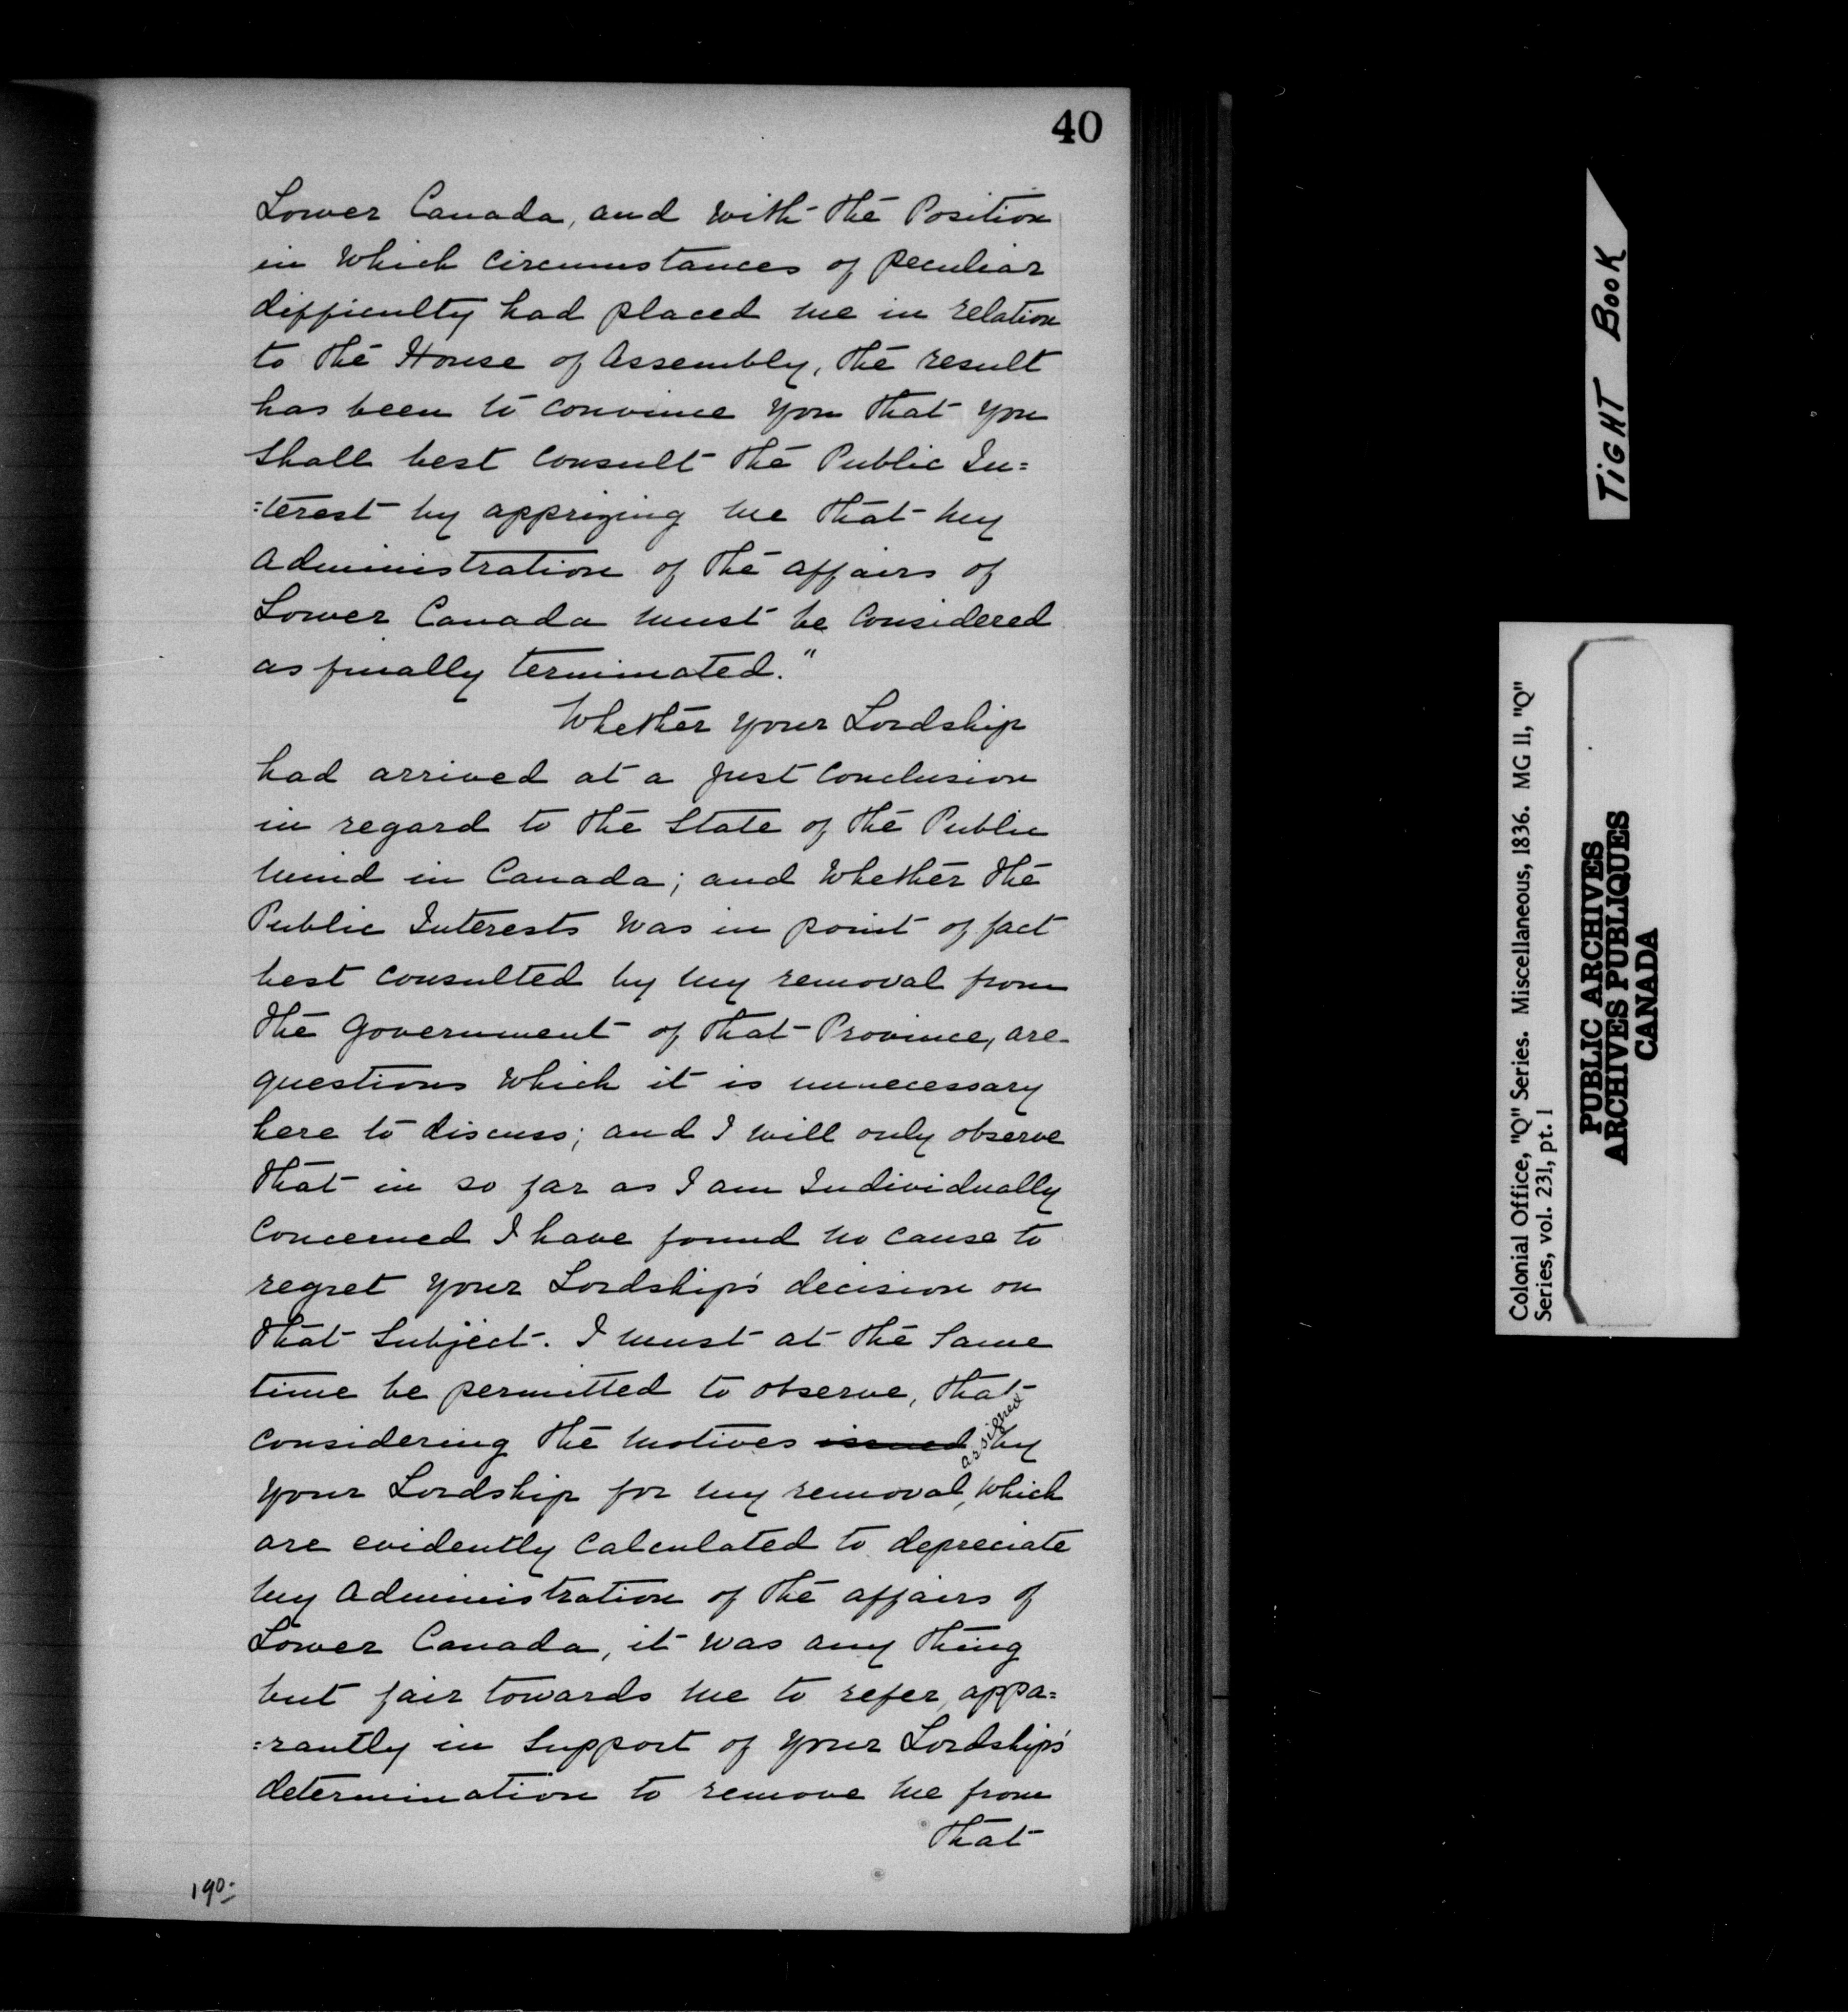 40
Lower Canada, and with the Position
in which circumstances of peculiar
difficulty had placed me in relation
to the House of Assembly, the result
has been to convince you that you
shall best consult the Public In=
=terest by apprizing me that my
administration of the affairs of
Lower Canada must be considered
as finally terminated."
Whether your Lordship
had arrived at a just conclusion
in regard to the state of the Public
mind in Canada; and whether the
Public Interests was in point of fact
best consulted by my removal from
the Government of that Province, are
questions which it is unnecessary
here to discuss; and I will only observe
that in so far as I am Individually
concerned I have found no cause to
regret your Lordship's decision on
that subject. I must at the same
time be permitted to observe, that
considering the motives issued assigned by
your Lordship for my removal, which
are evidently calculated to depreciate
my administration of the affairs of
Lower Canada, it was any thing
but fair towards me to refer, appa=
=rantly in support of your Lordship's
determination to remove me from
that
190.
TIGHT BOOK
Colonial Office, "Q" Series. Miscellaneous, 1836. MG 11, "Q"
Series, vol. 231, pt. 1
PUBLIC ARCHIVES
ARCHIVES PUBLIQUES
CANADA